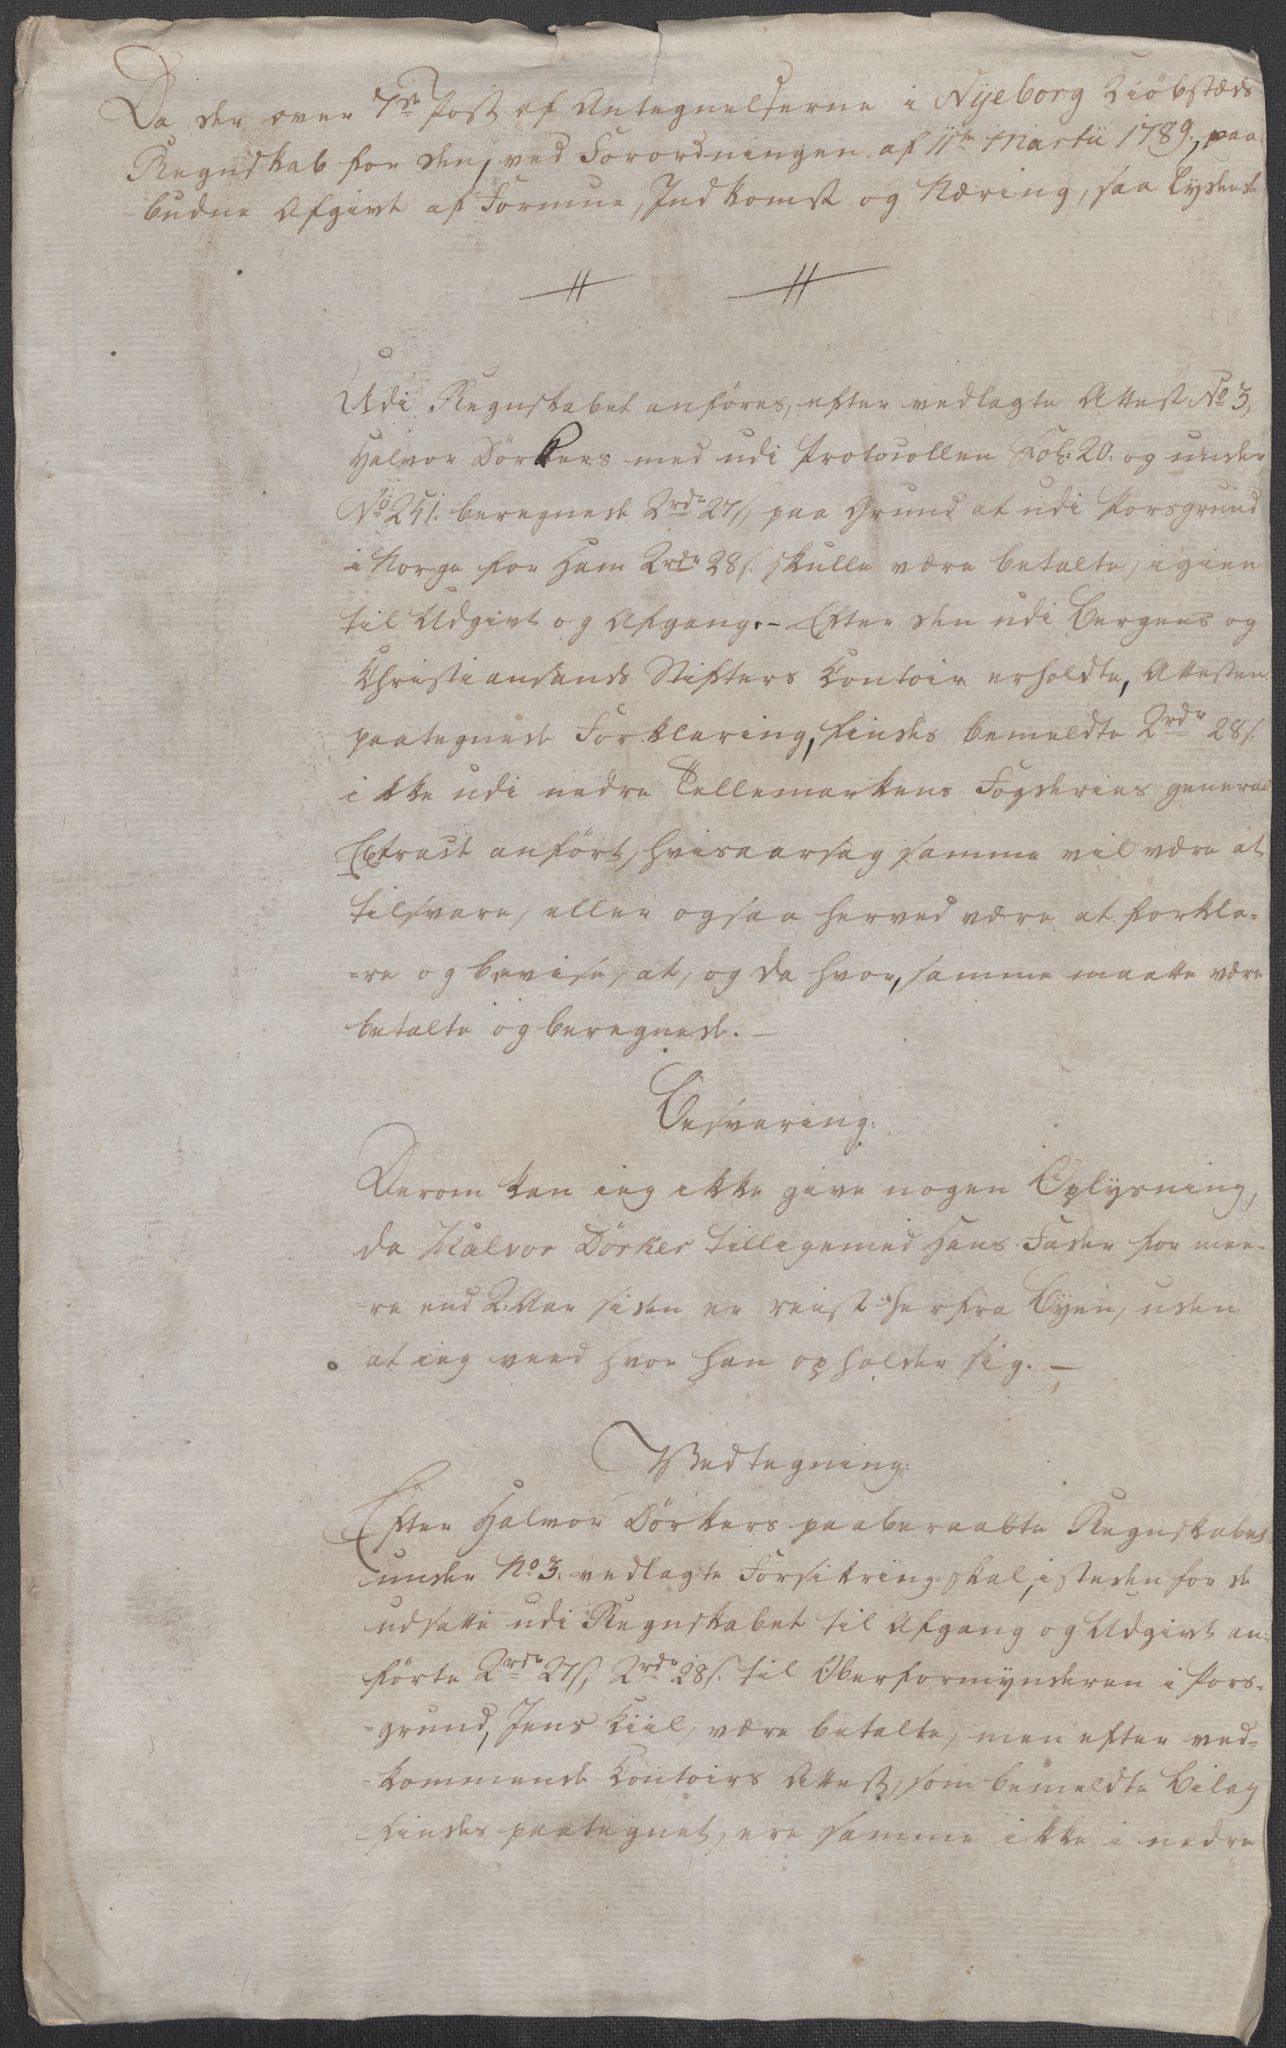 Da der over 7de Post af Antegnelserne i Nyeborg Kiöbstæds
Regnskab for den, ved Forordningen af 11te Martii 1789, paa-
budne Afgivt af Formue, Indkomst og Næring, saa lydende
Udi Regnskabet anföres, efter vedlagte Attest No 3,
Halvor Dörkers med udi Protocollen Fol: 20. og under
No 251. beregnede 2rdr 27s, paa Grund at udi Porsgrund
i Norge for ham 2rdr 28s. skulle være betalte, igien
til Udgivt og Afgang. - Efter den udi Bergens og
Christiansands Stifters Contoir erholdte, Attesten
paategnede Forklaring, findes bemeldte 2rdr 28s.
ikke udi nedre Tellemarkens Fogderies general
Extract anfört, hvisaarsag samme vil være at
tilsvare, eller ogsaa herved være at forkla-
-re og bevise, at, og da hvor, samme maatte være
betalte og beregnede. -
Besvaring:
Derom kan ieg ikke give nogen Oplysning,
da Halvor Dörker tilligemed hans Fader for mee-
-re end 2: Aar siden er reist herfra Byen, uden
at ieg veed hvor han opholder sig. -
Vedtegning:
Efter Halvor Dörkers paaberaabte Regnskabet
under No 3. vedlagte Forsikring skal, isteden for de
udsatte udi Regnskabet til Afgang og Udgivt an-
förte 2rdr 27s, 2rdr 28s. til Oberformynderen i Pors-
-grund, Jens Kiil, være betalte, men efter ved-
-kommende Contoirs Attest, som bemeldte Bilag
findes paategnet, ere samme ikke i nedre